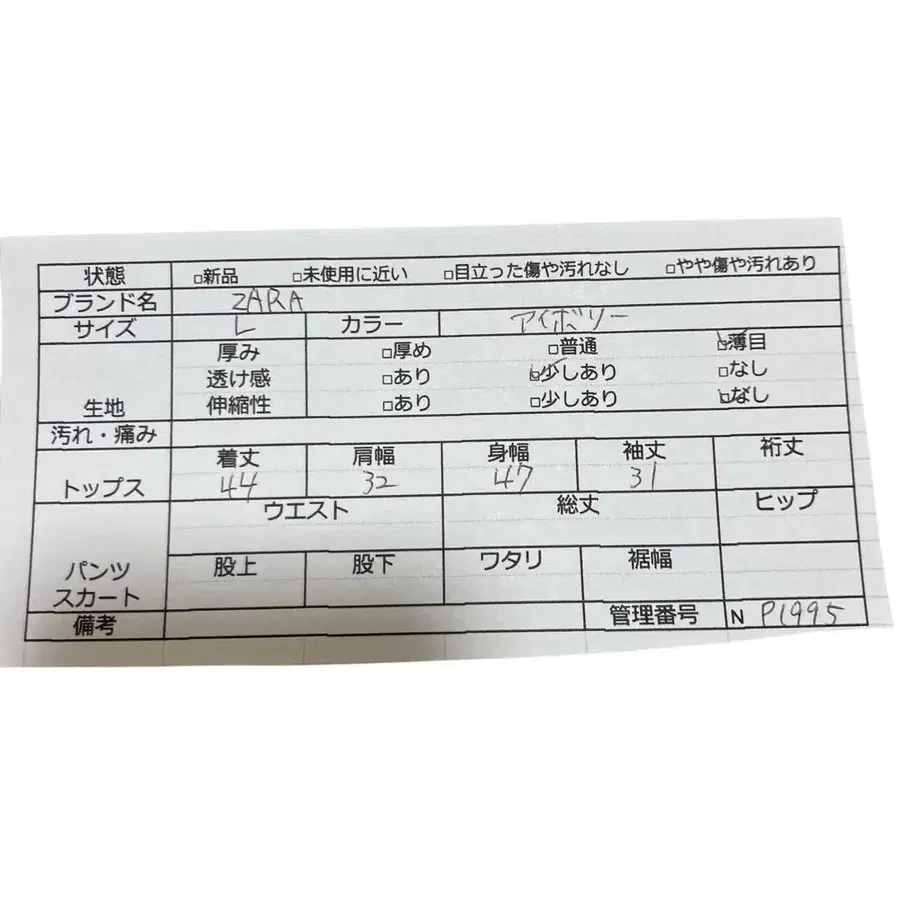 状態 □新品 □未使用に近い □目立った傷や汚れなし □やや傷や汚れあり
ブランド名 ZARA
サイズ L カラー アイボリー
厚み □厚め □普通 ☑薄目
透け感 □あり ☑少しあり □なし
生地 伸縮性 □あり □少しあり ☑なし
汚れ・痛み
着丈 肩幅 身幅 袖丈 裄丈
トップス 44 32 47 31
ウエスト 総丈 ヒップ
股上 股下 ワタリ 裾幅
パンツ
スカート
備考 管理番号 N P1995